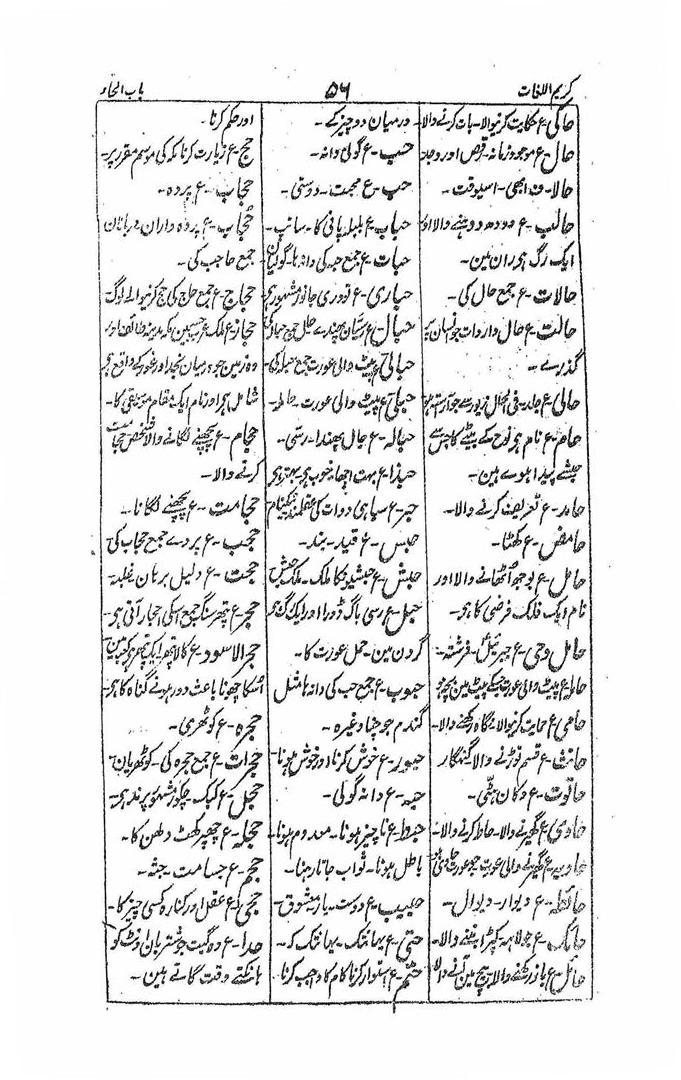 کریم اللغات
۵۶
باب الحاء
حاکی۔ع حکایت کرنیوالا۔بات کرنے والا۔
حال۔ع موجودہ زمانہ۔رقص اور وجد
حالا۔ف ابھی۔اسیوقت۔
حالب۔ع دودھ دوہنے والا اور
ایک رگ ہی ران مین۔
حالات۔ع جمع حال کی۔
حالت۔ع حال واردات جو انسان پر
گذرے۔
حالی۔ع حلیہ۔فی الحال زیور سے جو آراستہ ہو
حام۔ع نام ہی نوح کے بیٹے کا جس سے
حبشے پیدا ہوے ہین۔
حامد۔ع تعریف کرنے والا۔
حامض۔ع کھٹا۔
حامل۔ع بوجھ اُٹھانے والا اور
نام ایک فلک فرضی کا ہو۔
حامل وحی۔ع جبرئیل۔فرشتہ۔
حاملہ۔ع پیٹ والی عورت جسکے پیٹ مین بچہ ہو
حامی۔ع حمایت کرنیوالا۔نگاہ رکھنے والا۔
حانث۔ع قسم توڑنے والا گنہگار
حانوت۔ع دکان ہٹی۔
حاوی۔ع گھیرنے والا۔احاطہ کرنے والا۔
حاویہ۔ع گھیرنے والی عورت
حائط۔ع دیوار۔دیوال۔
حائک۔ع جولاہہ۔کپڑا بننے والا۔
حائل۔ع باز رکھنے والا۔بیچ مین آنے والا
درمیان دو چیز کے۔
حب۔ع گولی دانہ۔
حب۔ع محبت۔دوستی۔
حباب۔ع بلبلہ پانی کا۔سانپ۔
حبات۔ع جمع حبہ کی دانہا۔گولیان
حباری۔ع تودری جانور مشہور ہی
حبال۔ع رسیان پھندے جال جمع حبالہ کی
حبالیٰ۔ع پیٹ والی عورت جمع حبلہ کی۔
حبلی۔ع پیٹ والی عورت حاملہ۔
حبالہ۔ع جال پھندا۔رسی۔
حبذا۔ع بہت اچھا خوب ہی۔بہتر ہی
حبر۔ع سیاہی دوات کی عقلمند نیکنام
حبس۔ع قید۔بند۔
حبش۔ع حبشیونکا ملک۔ملک حبش
حبل۔ع رسی باگ ڈورا اور ایک رگ ہو
گردن مین۔حمل عورت کا۔
حبوب۔ع جمع حب کی دانہا مثل
گندم جو چنا وغیرہ۔
حبور۔ع خوش کرنا اور خوش ہونا۔
حبہ۔ع دانہ گولی۔
حبط۔ع ناچیز ہونا۔معدوم ہونا۔
باطل ہونا۔ثواب جاتا رہنا۔
حبیب۔ع دوست۔یار معشوق۔
حتی۔ع یہانتک۔یہانتک کہ۔
حتم۔ع استوار کرنا کام کا واجب کرنا
اور حکم کرنا۔
حج۔ع زیارت کرنا مکہ کی موسم مقرر پر۔
حجاب۔ع پردہ۔
حُجاب۔ع پردہ داران دربانان
جمع حاجب کی۔
حجاج۔ع جمع حاج کی حج کرنیوالے لوگ۔
حجاز۔ع ملک عرب جسمین مکہ مدینہ
وہ زمین جو درمیان نجد اور غور کے واقع ہی
شامل ہی اور نام ایک مقام موسیقی کا۔
حجام۔ع پچھنے لگانے والا شخص حجامت
کرنے والا۔
حجامت۔ع پچھنے لگانا۔
حجب۔ع پردے جمع حجاب کی
حجت۔ع دلیل برہان غلبہ
حجر۔ع پتھر سنگ جمع اسکی احجار آتی ہی۔
حجر الاسود۔ع کالا پتھر ایک پتھر ہی کعبہ مین
اسکا چھونا باعث دور ہونے گناہ کا ہی۔
حجرہ۔ع کوٹھری۔
حجرات۔ع جمع حجرہ کی۔کوٹھریان
حجل۔ع کبک۔چکور مشہور پرند ہی۔
حجلہ۔ع چھپر کھٹ دلھن کا۔
حجم۔ع جسامت۔جثہ۔
حجیٰ۔ع عقل اور کنارہ کسی چیز کا۔
حدا۔ع وہ گیت جو شتربان اونٹ کو
ہانکتے وقت گاتے ہین۔